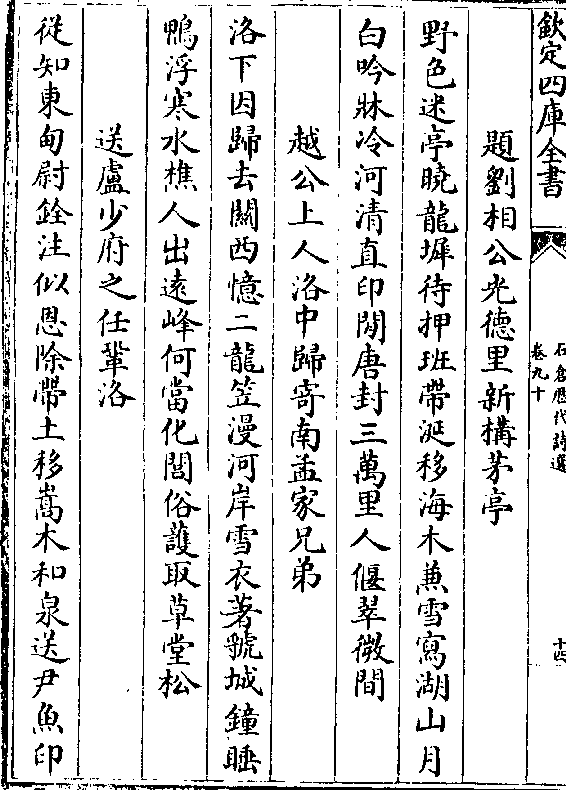 欽定四庫全書
石倉歴代詩選
卷九十
十四
題劉相公光德里新構茅亭
野色迷亭曉龍墀待押班帶涎移海木兼雪寫湖山月
白吟牀冷河清直印閒唐封三萬里人偃翠微間
越公上人洛中歸寄南孟家兄弟
洛下因歸去關西憶二龍笠漫河岸雪衣著虢城鐘睡
鴨浮寒水樵人出遠峰何當化閭俗護取草堂松
送盧少府之任鞏洛
從知東甸尉銓注似恩除帶土移嵩木和泉送尹魚印